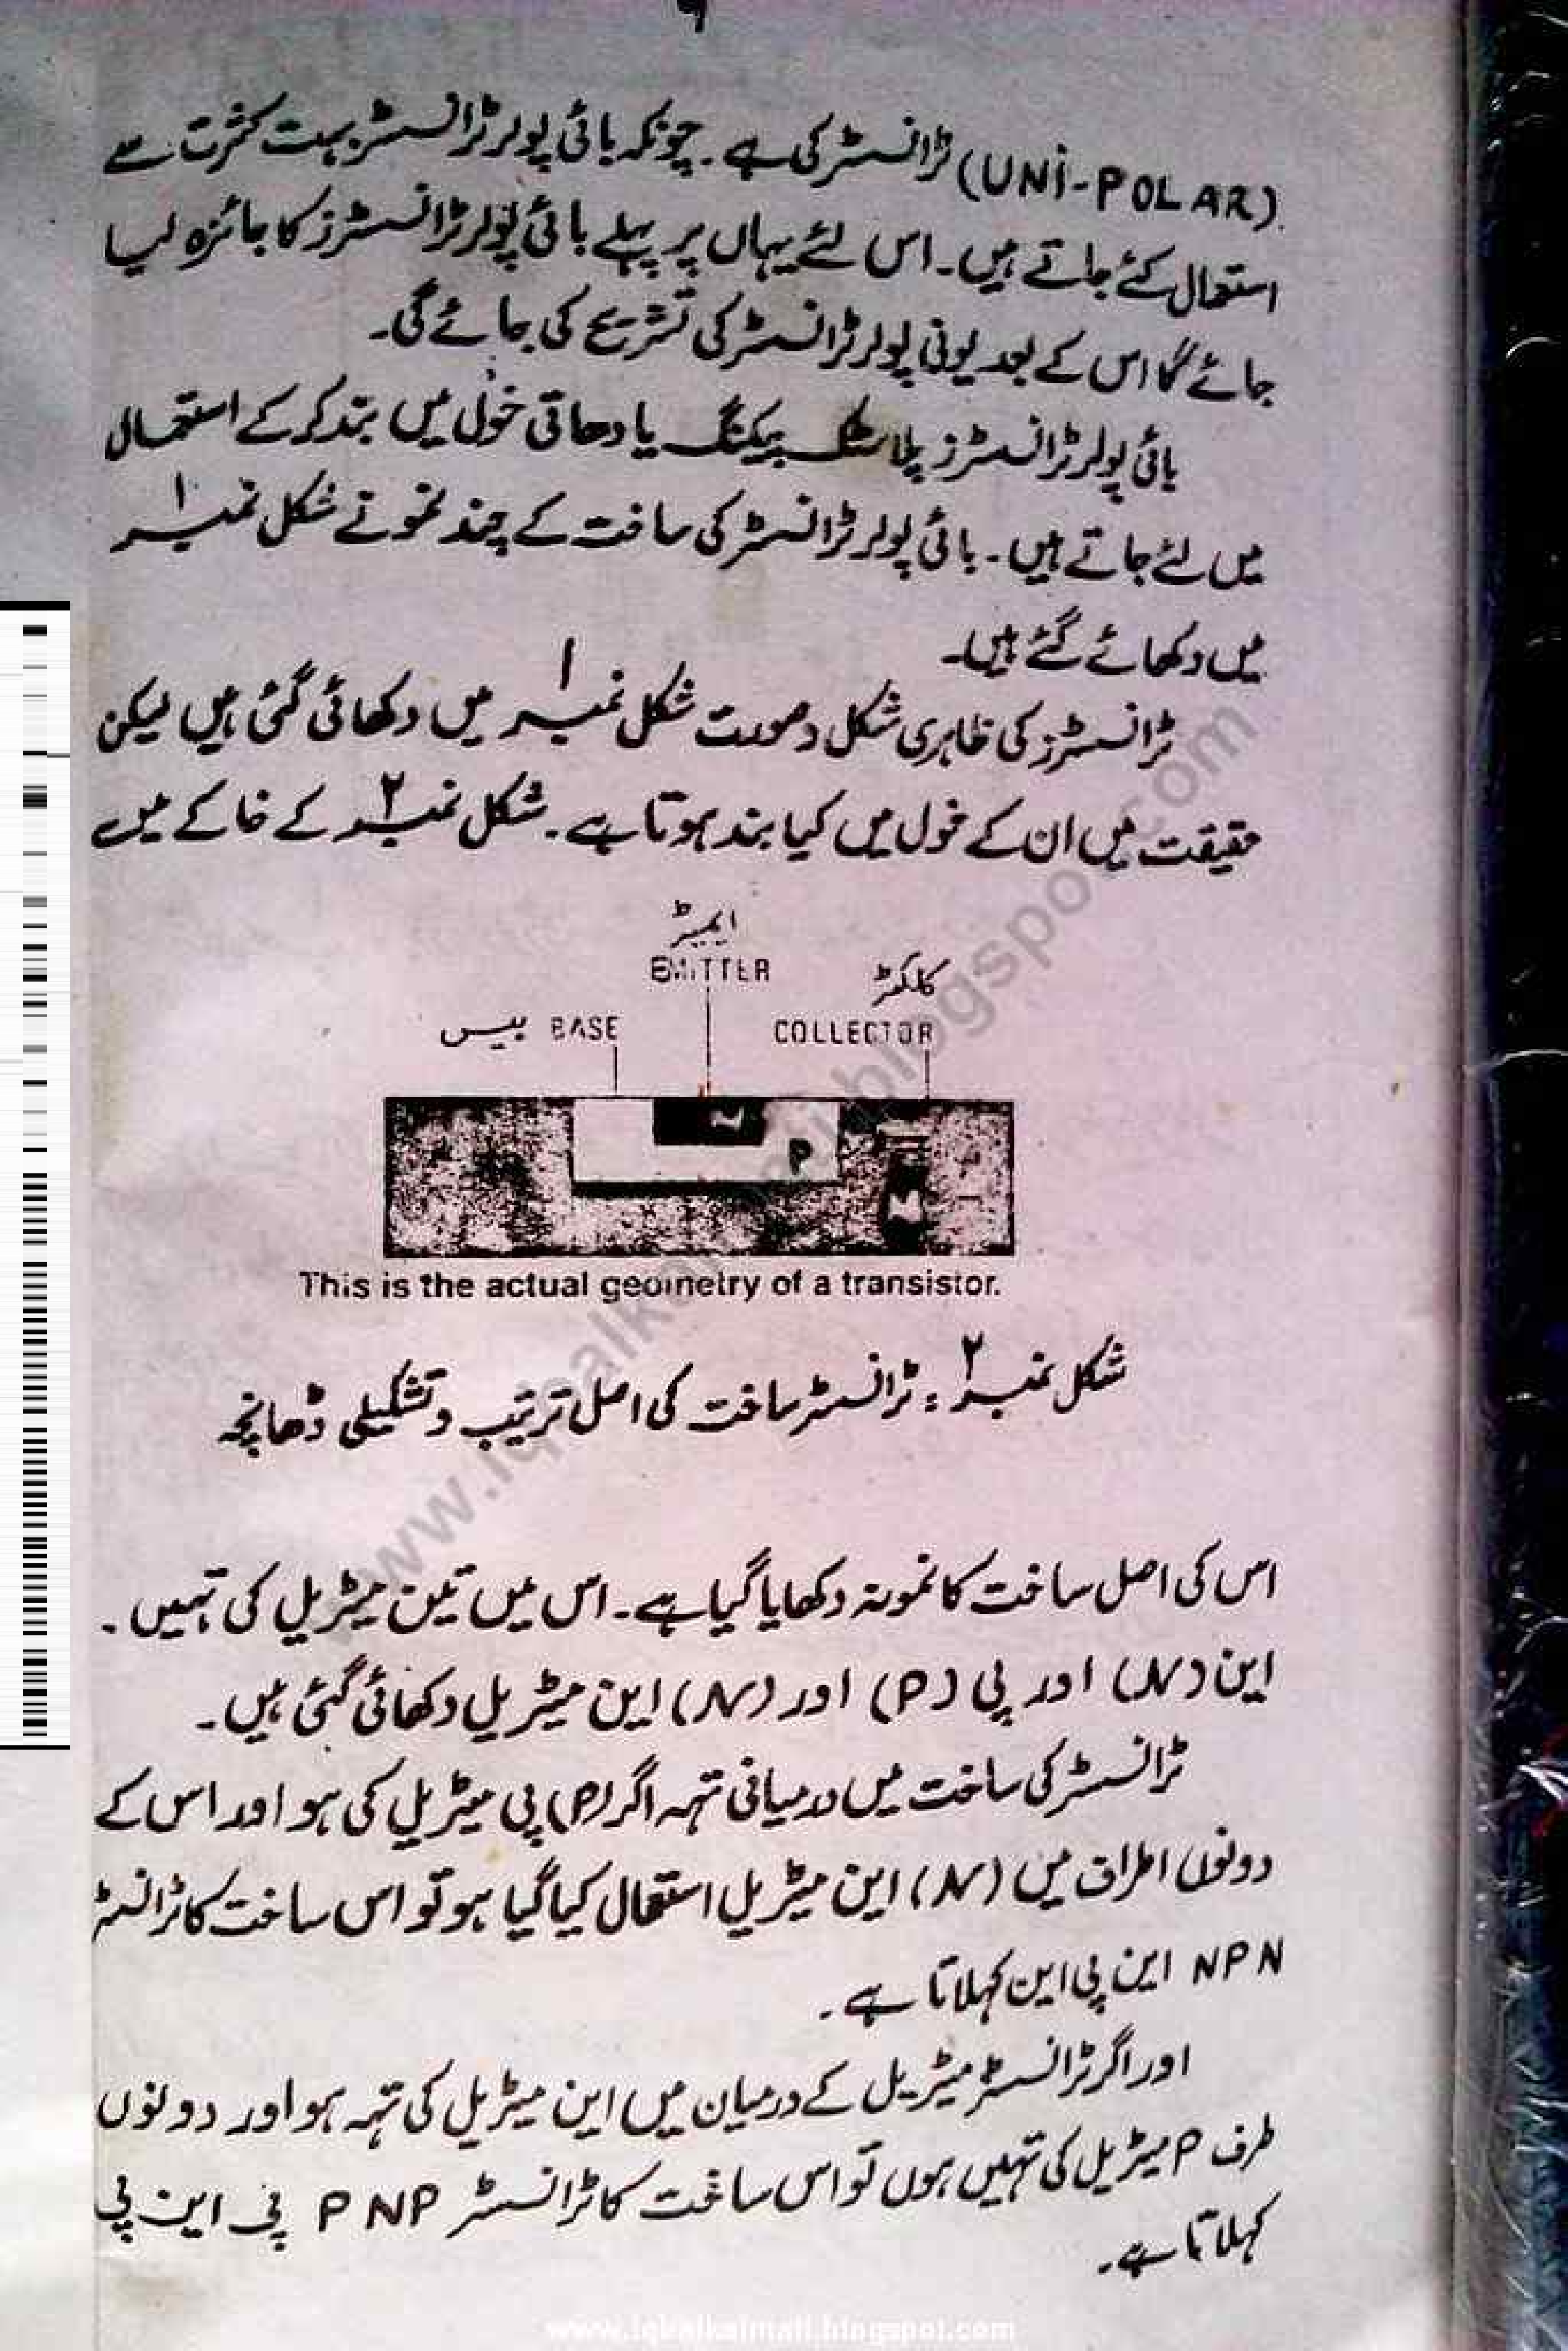 ۹
(UNi-POLAR) ٹرانسسٹر کی ہے۔ چونکہ بائی پولر ٹرانسسٹر بہت کثرت سے
استعمال کئے جاتے ہیں۔ اس لئے یہاں پر پہلے بائی پولر ٹرانسسٹرز کا جائزہ لیا
جائے گا اس کے بعد یونی پولر ٹرانسسٹر کی تشریح کی جائے گی۔
بائی پولر ٹرانسسٹرز پلاسٹک پیکنگ یا دھاتی خول میں بند کر کے استعمال
میں لئے جاتے ہیں۔ بائی پولر ٹرانسسٹر کی ساخت کے چند نمونے شکل نمبر ۱
میں دکھائے گئے ہیں۔
ٹرانسسٹرز کی ظاہری شکل و صورت شکل نمبر ۱ میں دکھائی گئی ہیں لیکن
حقیقت میں ان کے خول میں کیا بند ہوتا ہے۔ شکل نمبر ۲ کے خاکے میں
ایمیٹر
EMITTER
کلکٹر
بیس BASE
COLLECTOR
N
P
N
This is the actual geometry of a transistor.
شکل نمبر ۲ : ٹرانسسٹر ساخت کی اصل ترتیب و تشکیلی ڈھانچہ
اس کی اصل ساخت کا نمونہ دکھایا گیا ہے۔ اس میں تین میٹریل کی تہیں۔
این (N) اور پی (P) اور (N) این میٹریل دکھائی گئی ہیں۔
ٹرانسسٹر کی ساخت میں درمیانی تہہ اگر (P) پی میٹریل کی ہو اور اس کے
دونوں اطراف میں (N) این میٹریل استعمال کیا گیا ہو تو اس ساخت کا ٹرانسسٹر
NPN این پی این کہلاتا ہے۔
اور اگر ٹرانسسٹر میٹریل کے درمیان میں این میٹریل کی تہہ ہو اور دونوں
طرف P میٹریل کی تہیں ہوں تو اس ساخت کا ٹرانسسٹر PNP پی این پی
کہلاتا ہے۔
www.iqbalkalmati.blogspot.com
www.iqbalkalmati.blogspot.com